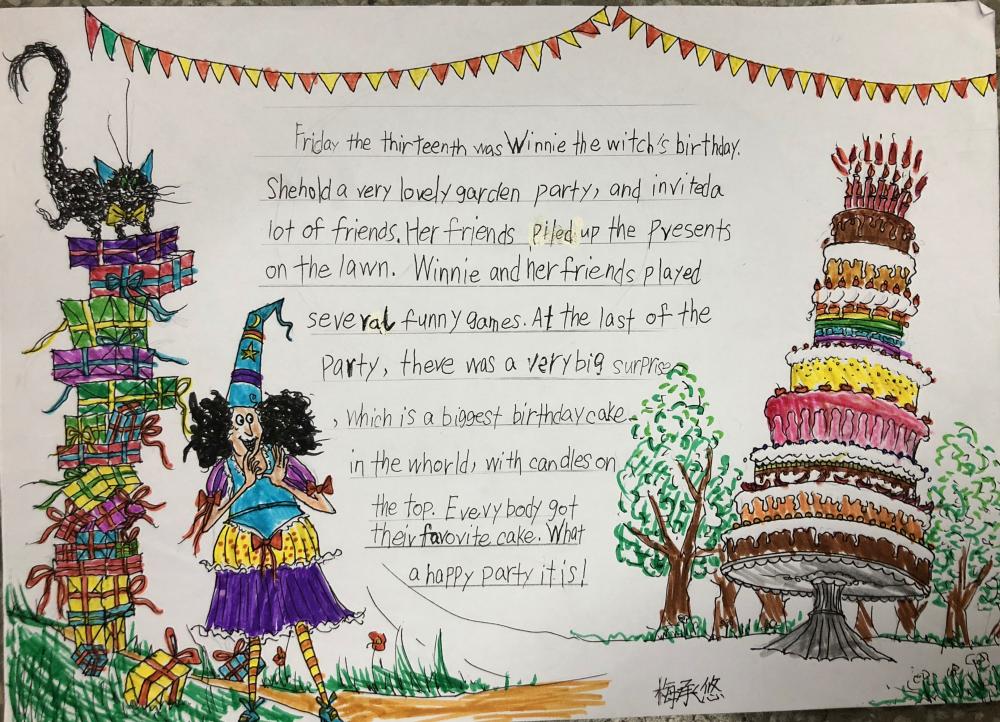 Friday the thirteenth was Winnie the witch's birthday.
Shehold a very lovely garden party, and invited a
lot of friends. Her friends piled up the Presents
on the lawn. Winnie and her friends played
several funny games. At the last of the
Party, there was a very big surprise
, which is a biggest birthday cake.
in the whorld, with candles on
the top. Everybody got
their favovite cake. What
a happy party it is!
梅承悠